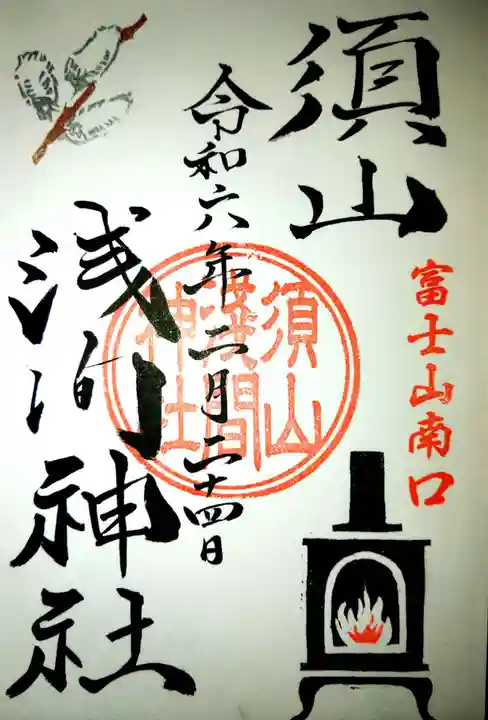 須山
富士山南口
令和六年二月二十四日
須山
浅間
神社
浅间神社